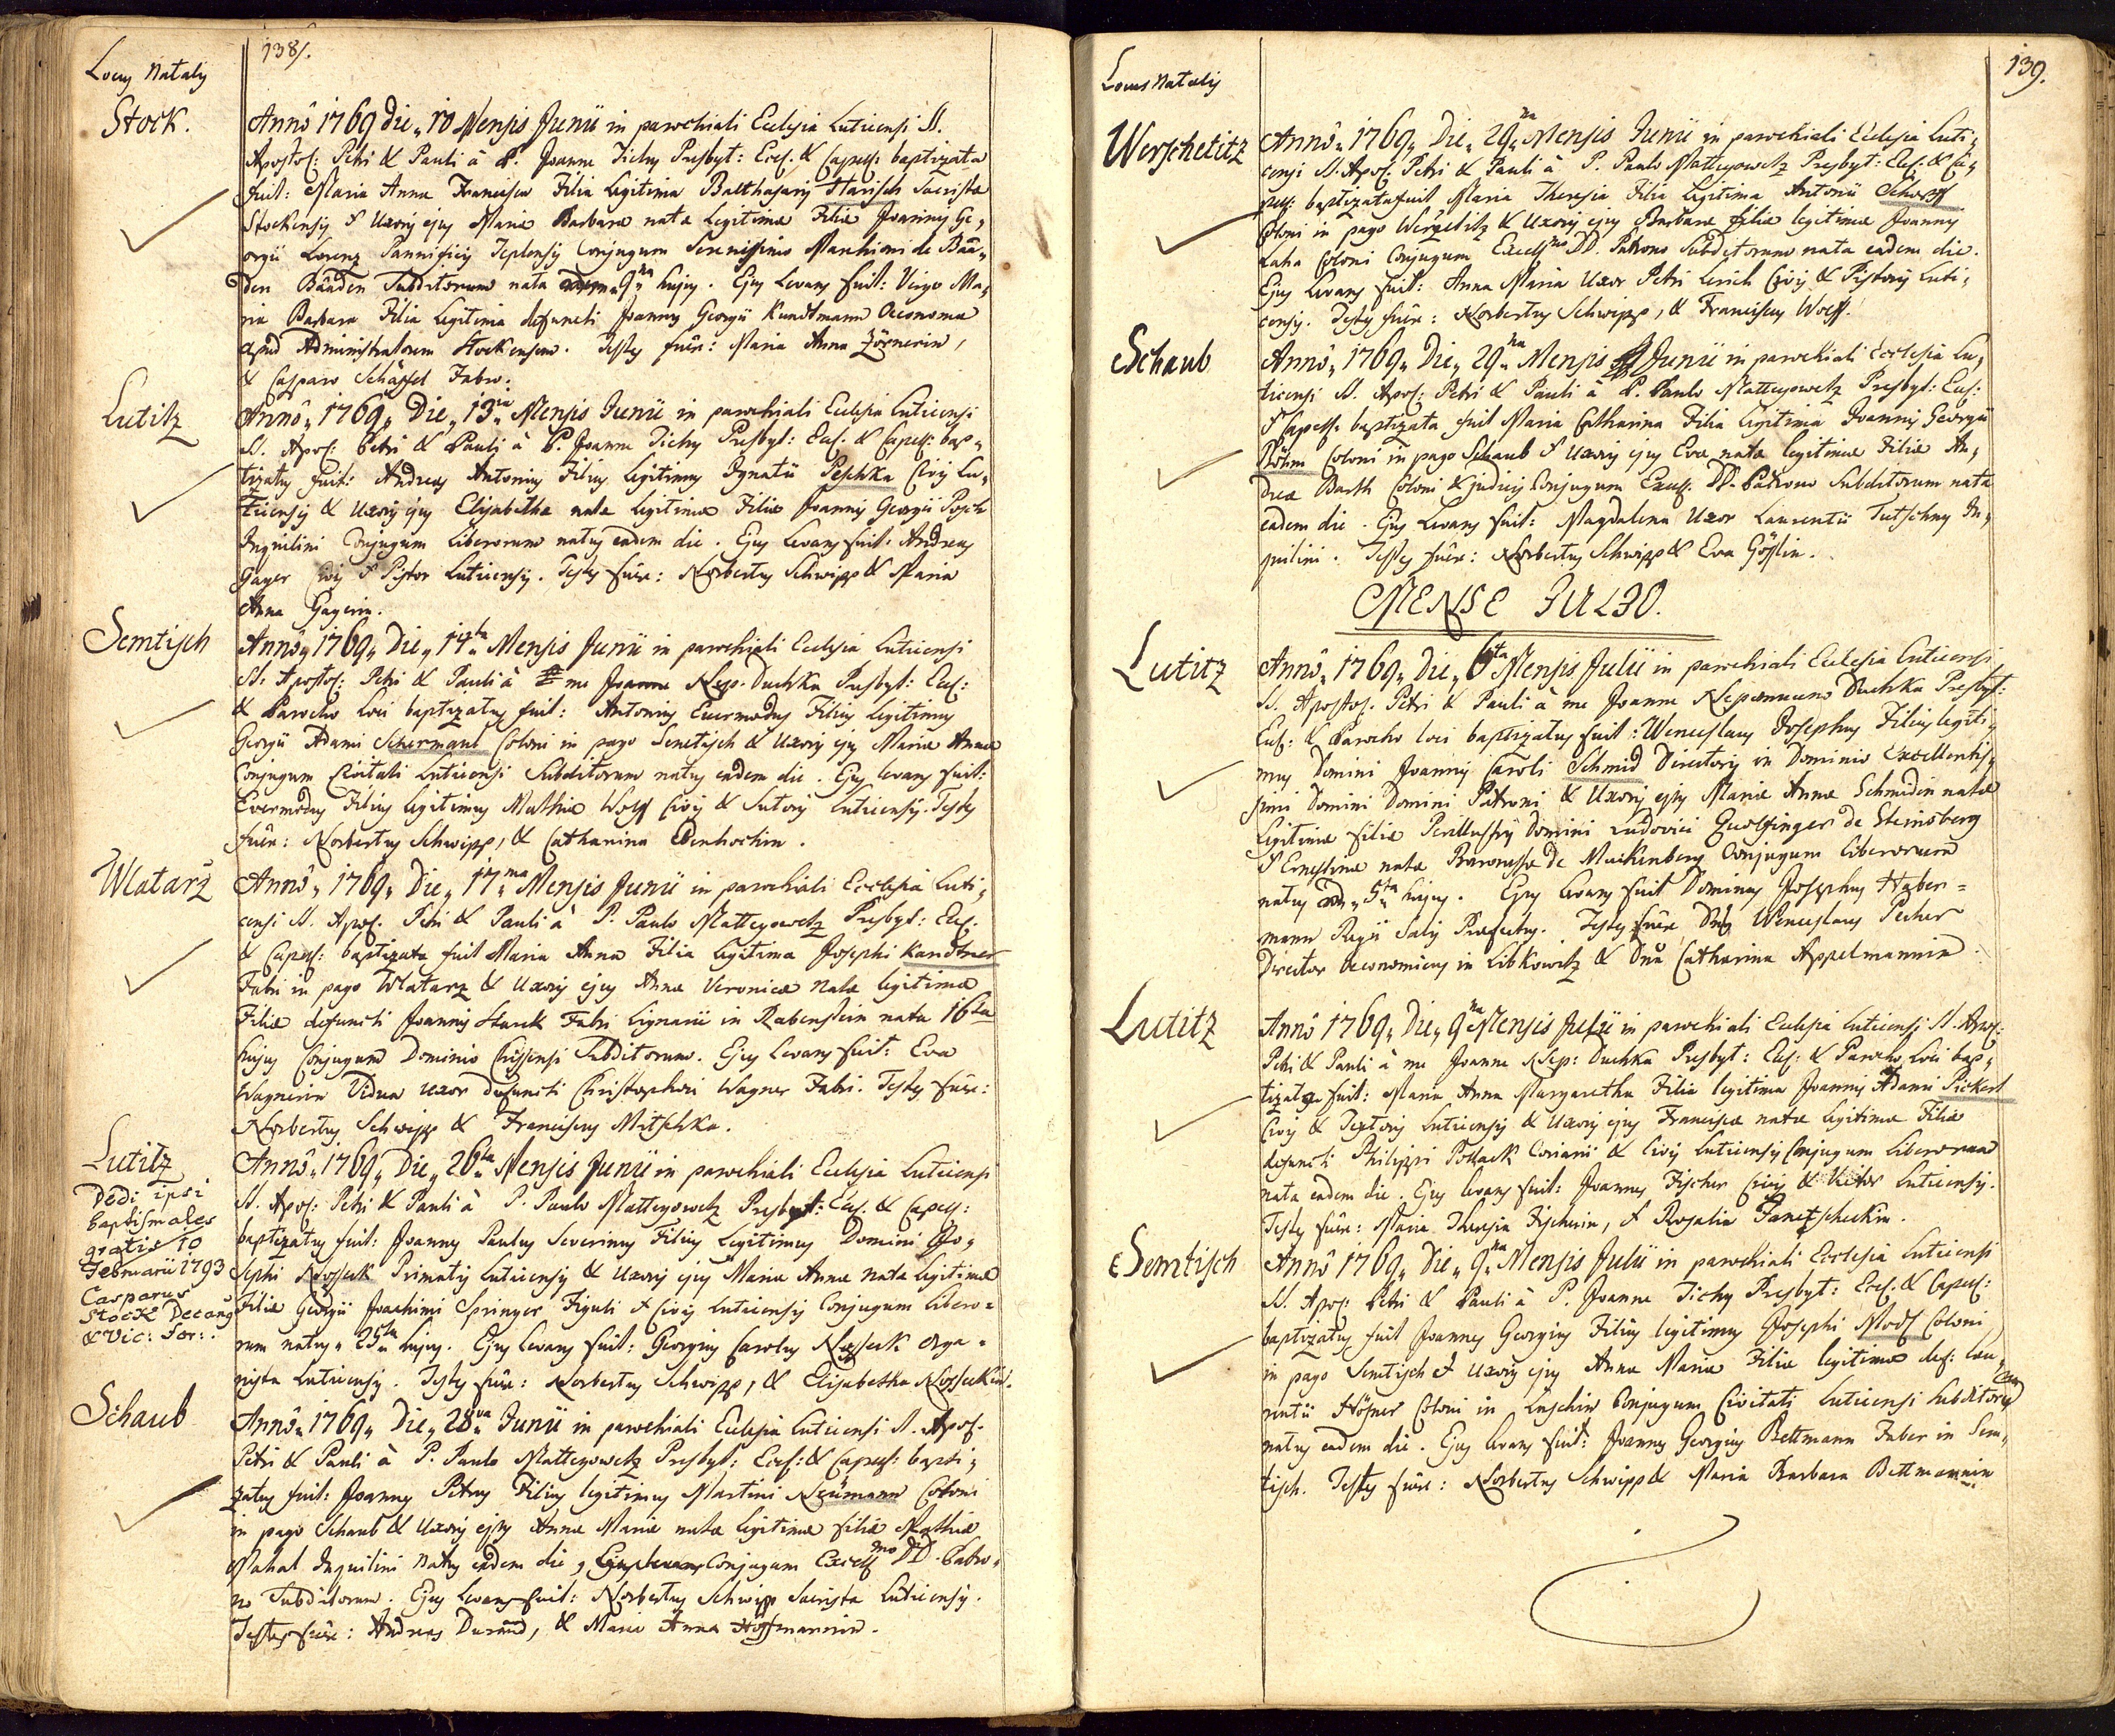 138.
Locus Natalis
Stock.
Annô 1769 die 10 Mensis Junii in parochiali Ecclesia Luticensi SS.
Apostol: Petri & Pauli à P. Joanne Tichy Presbyt: Eccl. & Capell: baptizata
fuit: Maria Anna Francisca Filia Legitima Balthasaris Harisch Sacristæ
Stockensis & Uxoris ejus Mariæ Barbaræ natæ Legitimæ Filiæ Joannis Ge,
orgii Lorenz Pannificis Teplensis Conjugum Serenissimo Marchioni de Baa,
den Baaden Subditorum nata 9na hujus. Ejus Levans fuit: Virgo Ma,
ria Barbara Filia Legitima defuncti Joannis Georgii Kundtmann Oeconoma
apud Administratorem Stockensem. Testes fuêre: Maria Anna Zörnerin,
& Casparo Schäffel Fabro.
Lutitz
Annô 1769 Die 13tia Mensis Junii in parochiali Ecclesia Luticensi
SS. Apos: Petri & Pauli à P. Joanne Tichy Presbyt: Eccl. & Capell: bap,
tizatus fuit: Andreas Antonius Filius Legitimus Ignatii Peschka Civis Lu,
ticensis & Uxoris ejus Elisabethæ natæ Legitimæ Filiæ Joannis Georgii Posch
Inquilini Conjugum Liberorum natus eadem die. Ejus Levans fuit: Andreas
Gayer Civis & Pistor Luticensis. Testes fuêre: Norbertus Schwipp & Maria
Anna Gayerin.
Semtisch
Annô 1769 Die 14ta Mensis Junii in parochiali Ecclesia Luticensi
SS. Apostol: Petri & Pauli à me Joanne Nep. Duchka Presbyt: Eccl:
& Parocho Loci baptizatus fuit: Antonius Evermodus Filius Legitimus
Georgii Adami Schermaul Coloni in pago Semtisch & Uxoris ejus Mariæ Annæ
Conjugum Civitati Luticensi Subditorum natus eadem die. Ejus levans fuit:
Evermodus Filius Legitimus Mathiæ Wolff Civis & Sutoris Luticensis. Testes
fuêre: Norbertus Schwipp, & Catharina
Wlatarž
Annô 1769 Die 17ma Mensis Junii in parochiali Ecclesia Luti,
censi SS. Apos. Petri & Pauli à P. Paulo Matteyowetz Presbyt: Eccl.
& Capell: baptizata fuit Maria Anna Filia Legitima Josephi Kandtner
Fabri in pago Wlatarz & Uxoris ejus Annæ Veronicæ natæ legitimæ
Filiæ defuncti Joannis Starck Fabri Lignarii in Rabenstein nata 16ta
hujus Conjugum Dominio Chiessensi Subditorum. Ejus Levans fuit: Eva
Wagnerin Vidua Uxor defuncti Christophori Wagner Fabri. Testes fuêre:
Norbertus Schwipp & Franciscus Mitschka.
Lutitz
Dedi ipsi
baptismales
gratis 10
Februarii 1793
Casparus
Stock Decanus
& Vic: For:.
Annô 1769 Die 26ta Mensis Junii in parochiali Ecclesia Luticensi
SS. Apos: Petri & Pauli à P. Paulo Matteyowetz Presbyt: Eccl. & Capell:
baptizatus fuit: Joannes Paulus Severinus Filius Legitimus Domini Jo,
sephi Nosseck Primatis Luticensis & Uxoris ejus Mariæ Annæ natæ Legitimæ
Filiæ Georgii Joachimi Springer Figuli & Civis Luticensis Conjugum Libero-
rum natus 25ta hujus. Ejus Levans fuit: Georgius Carolus Nosseck Orga-
nista Luticensis. Testes fuêre: Norbertus Schwipp, & Elisabetha Nosseckin.
Schaub
Annô 1769 Die 28va Junii in parochiali Ecclesia Luticensi SS. Apos.
Petri & Pauli à P. Paulo Matteyowetz Presbyt: Eccl: & Capell: bapti,
zatus fuit: Joannes Petrus Filius legitimus Martini Neümann Coloni
in pago Schaub & Uxoris ejus Annæ Mariæ natæ Legitimæ filiæ Mathiæ
Mahal Inquilini natus eadem die, Conjugum Excellmo DD. Patro-
no Subditorum. Ejus Levans fuit: Norbertus Schwipp Sacrista Luticensis.
Testes fuêre: Andreas Durand, & Maria Anna Hoffmannin.
139.
Locus Natalis
Werschetitz
Annô 1769 Die 29na Mensis Junii in parochiali Ecclesia Luti,
censi SS. Apos: Petri & Pauli à P. Paulo Matteyowetz Presbyt: Eccl. & Ca,
pell: baptizata fuit Maria Theresia Filia Legitima Antonii
Coloni in pago Werschetitz & Uxoris ejus Barbaræ filiæ legitimæ Joannis
Coloni Conjugum Excellmo DD. Patrono Subditorum nata eadem die.
Ejus Levans fuit: Anna Maria Uxor Petri Lerich Civis & Pistoris Luti,
censis. Testes fuêre: Norbertus Schwipp, & Franciscus Wolff.
Schaub
Annô 1769 Die 29na Mensis Junii in parochiali Ecclesia Lu,
ticensi SS. Apos: Petri & Pauli à P. Paulo Matteyowetz Presbyt: Eccl:
& Capell: baptizata fuit Maria Catharina Filia Legitima Joannis Georgii
Böhm Coloni in pago Schaub & Uxoris ejus Evæ natæ legitimæ Filiæ An,
dreæ Barth Coloni & judicis Conjugum Excell: DD. Patrono Subditorum nata
eadem die. Ejus Levans fuit: Magdalena Uxor Laurentii Tutschny In,
quilini. Testes fuêre: Norbertus Schwipp & Eva Gösslin.
MENSE JULIO.
Lutitz
Annô 1769 Die 6ta Mensis Julii in parochiali Ecclesia Luticensi
SS. Apostol. Petri & Pauli à me Joanne Nepomuceno Duchka Presbyt:
Eccl: & Parocho loci baptizatus fuit: Wenceslaus Josephus Filius legiti,
mus Domini Joannis Caroli Schmid Directoris in Dominio Excellentis,
simi Domini Domini Patroni & Uxoris ejus Mariæ Annæ Schmidin natæ
Legitimæ filiæ Perillustris Domini Ludovici Quolfinger de Steinsberg
& Ernestinæ natæ Baronessæ de Muckenberg Conjugum Liberorum
natus 5ta hujus. Ejus Levans fuit Dominus Josephus Haber=
mann Regii Salis Præfectus. Testes fuêre Dnus Wenceslaus Pecher
Director Oeconomicus in Libkowitz & Dna Catharina Appelmannin
Lutitz
Annô 1769 Die 9na Mensis Julii in parochiali Ecclesia Luticensi SS. Apos:
Petri & Pauli à me Joanne Nep: Duchka Presbyt: Eccl: & Parocho Loci bap,
tizata fuit: Maria Anna Margaretha Filia legitima Joannis Adami Pickert
Civis & Textoris Luticensis & Uxoris ejus Franciscæ natæ Legitimæ Filiæ
defuncti Philippi Pollack Coriarii & Civis Luticensis Conjugum Liberorum
nata eadem die. Ejus levans fuit: Joannes Fischer Civis & Vietor Luticensis.
Testes fuêre: Maria Theresia Fischerin, & Rosalia Janetscheckin.
Semtisch
Annô 1769 Die 9na Mensis Julii in parochiali Ecclesia Luticensi
SS. Apos: Petri & Pauli à P. Joanne Tichy Presbyt: Eccl. & Capell:
baptizatus fuit Joannes Georgius Filius legitimus Josephi Coloni
in pago Semtisch & Uxoris ejus Annæ Mariæ Filiæ legitimæ def: Lau,
rentii Höfner Coloni in Luschin Conjugum Civitati Luticensi Subditorum
natus eadem die. Ejus levans fuit: Joannes Georgius Bettmann Faber in Sem,
tisch. Testes fuêre: Norbertus Schwipp & Maria Barbara Bettmannin